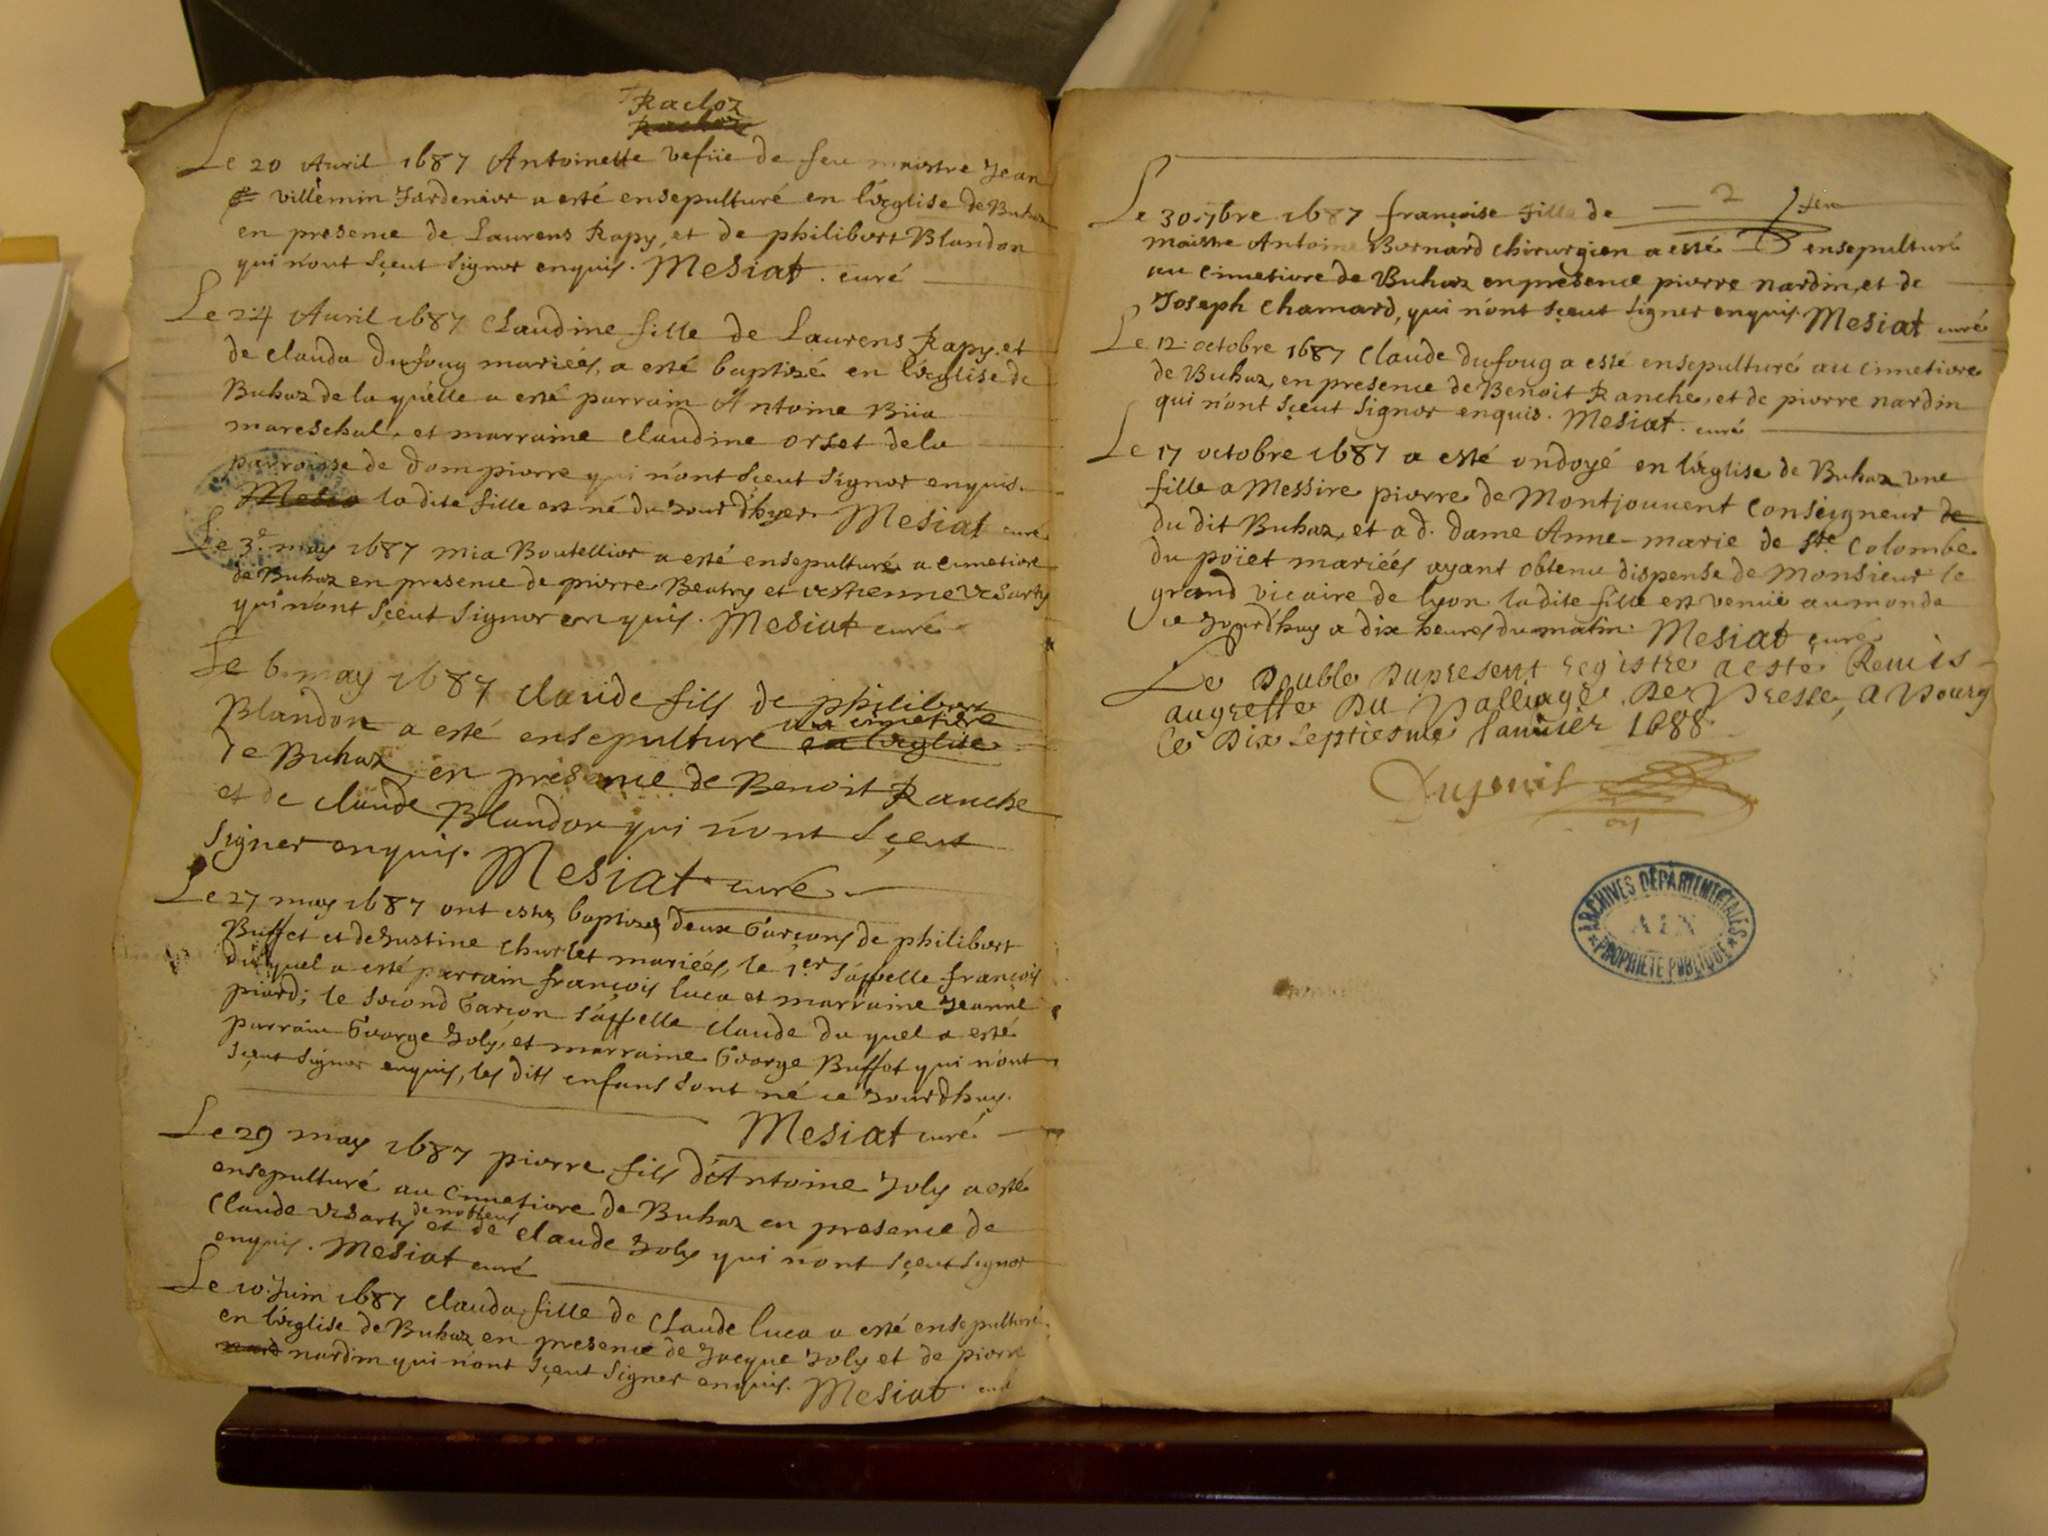 Racloz
Le 20 Auril 1687 Antoinette vefüe de feu maistre Jean
villemin Jardenier a esté ensepulturé en l'eglise de Buhaz
en presence de Laurens Rapy, et de philibert Blandon
qui n'ont sçeut signer enquis. Mesiat. curé
Le 24 Auril 1687 Claudine fille de Laurens Rapy, et
de clauda dufoug mariées, a esté baptizé en l'eglise de
Buhaz de la quélle a esté parrain Antoine Biia
mareschal, et marraine claudine orset dela
parroisse de dompierre qui n'ont sçeut signer enquis.
Mesia la dite fille est né du jourd'hyer Mesiat curé
Le 3e may 1687 mia Boutellier a esté ensepulturé a cimetiere
de Buhaz en presence de pierre Beatry et estienne
qui n'ont sçeut signer enquis. Mesiat curé
Le 6. may 1687 claude fils de philibert
Blandon a esté ensepulturé en l'eglise au cimetiere
de Buhaz, en presence de Benoist Ranche
et de claude Blandon qui n'ont sçeut
signer enquis. Mesiat curé
Le 27 may 1687 ont estez baptizez deux Garçons de philibert
Buffet et de Justine Charlet mariées, le 1er s'appelle françois
du quel a esté parrain françois luca et marraine Jeanne
piard; le second Garçon s'appelle claude du quel a esté
parrain George Joly, et marraine George Buffet qui n'ont
sçeut signer enquis, les dits enfans sont né ce jourdhuy.
Mesiat curé
Le 29 may 1687 pierre fils d'Antoine Joly a esté
ensepulturé au cimetiere de Buhaz en presence de
Claude et de claude Joly qui n'ont sçeut signer
enquis. Mesiat curé
Le 10. Juin 1687 clauda fille de Claude luca a esté ensepulturé
en l'eglise de Buhaz en presence de Jacque Joly et de pierre
nard nardin qui n'ont sçeut signer enquis. Mesiat curé
Le 30 7bre 1687 françoise fille de feu
maistre Antoine Bernard chirurgien a esté ensepulturé
au cimetiere de Buhaz en presence pierre nardin, et de
Joseph Chamard, qui n'ont sçeut signer enquis Mesiat curé
Le 12 octobre 1687 Claude dufoug a esté ensepulturé au cimetiere
de Buhaz, en presence de Benoit Ranche, et de pierre nardin
qui n'ont sçeut signer enquis. Mesiat curé
Le 17 octobre 1687 a esté ondoyé en l'eglise de Buhaz une
fille a Messire pierre de Montjouuent Conseigneur de
du dit Buhaz, et a d. dame Anne-marie de ste Colombe
du poïet mariées ayant obtenu dispense de Monsieur le
grand vicaire de lyon la dite fille est venüe au monde
ce jourd'huy a dix heures du matin Mesiat curé
Le Double Dupresent registre a esté Remis
au greffe Du Balliage De Bresse, a Bourg
Ce Dix septiesme Januier 1688
ARCHIVES DÉPARTEMENTALES
AIN
PROPRIÉTÉ PUBLIQUE